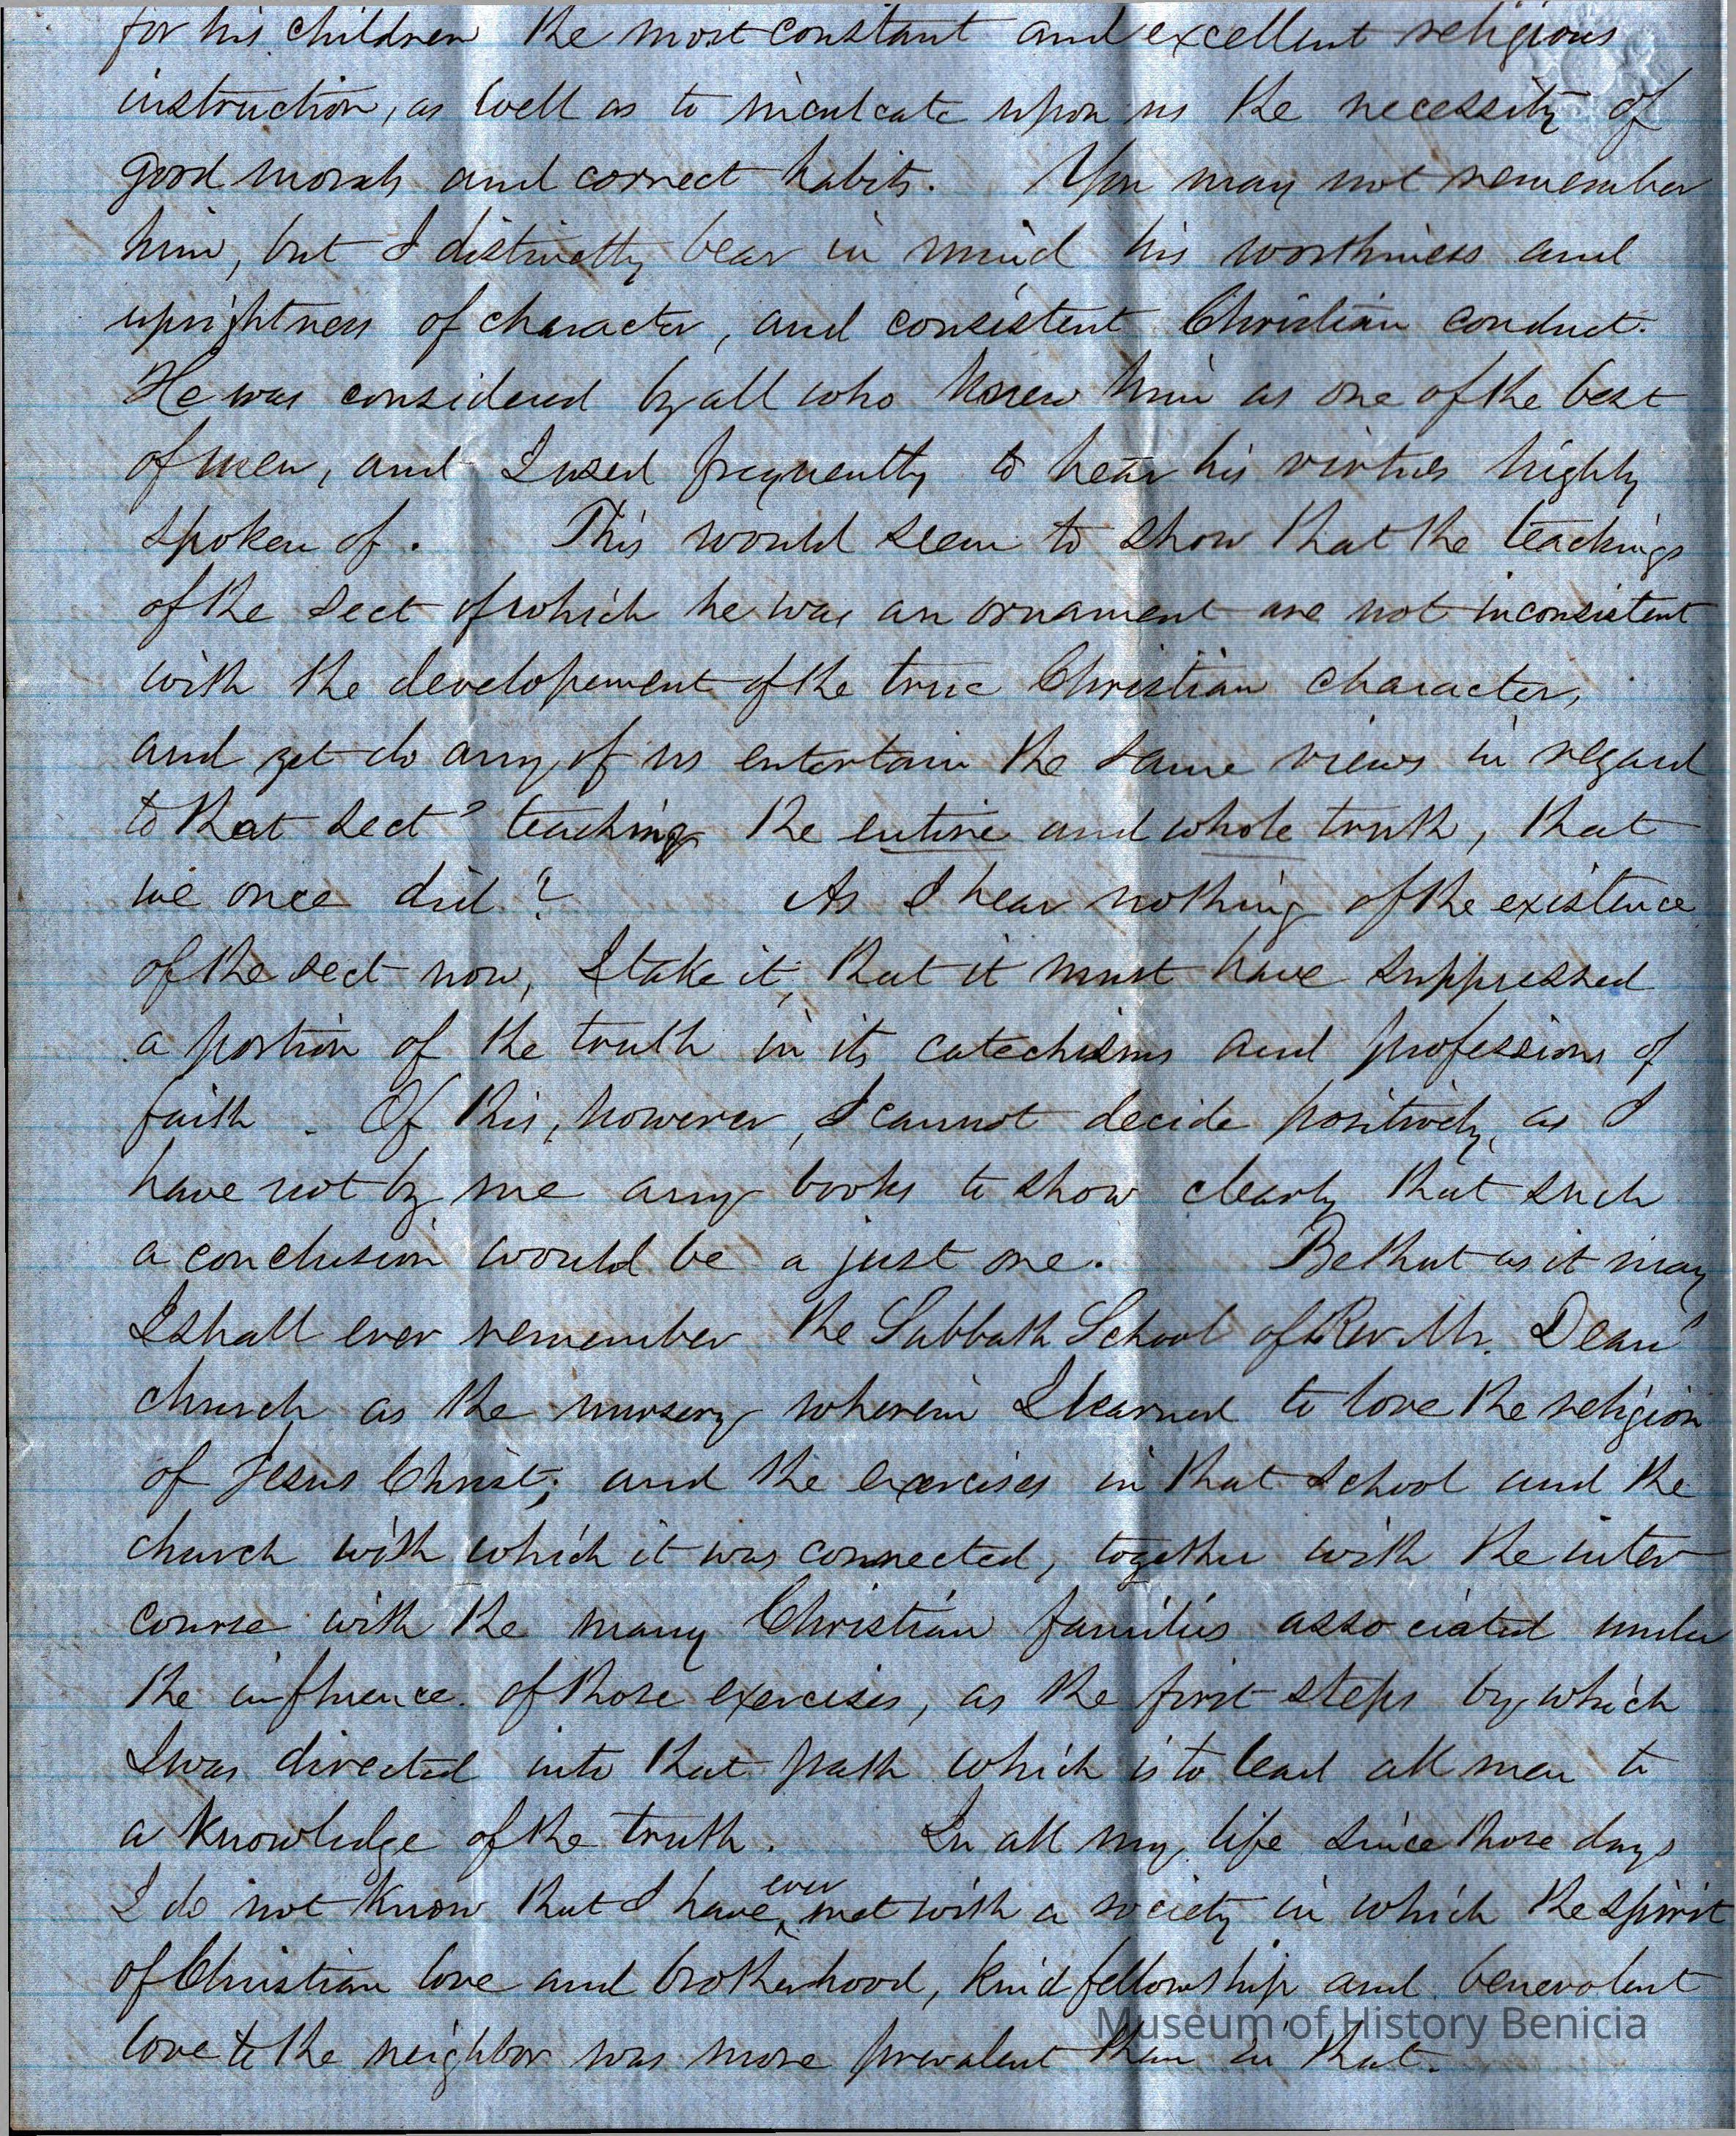 for his children the most constant and excellent religious
instruction, as well as to inculcate upon us the necessity of
good morals and correct habits. You may not remember
him, but I distinctly bear in mind his worthiness and
uprightness of character, and consistent Christian conduct.
He was considered by all who knew him as one of the best
of men, and I used frequently to hear his virtues highly
spoken of. This would seem to show that the teachings
of the sect of which he was an ornament are not inconsistent
with the developement of the true Christian character,
and yet do any of us entertain the same views in regard
to that sect' teaching the entire and whole truth, that
we once did? As I hear nothing of the existence
of the sect now, I take it, that it must have suppressed
a portion of the truth in its catechisms and professions of
faith. Of this, however, I cannot decide positively, as I
have not by me any books to show clearly that such
a conclusion would be a just one. Be that as it may
I shall ever remember the Sabbath School of Rev Mr. Dean'
church as the nursery wherein I learned to love the religion
of Jesus Christ; and the exercises in that school and the
church with which it was connected, together with the inter
course with the many Christian families associated under
the influence of those exercises, as the first steps by which
I was directed into that path which is to lead all men to
a knowledge of the truth. In all my life since those days
I do not know that I have ever met with a society in which the spirit
of Christian love and brotherhood, kind fellowship and benevolent
love to the neighbor was more prevalent than in that.
Museum of History Benicia